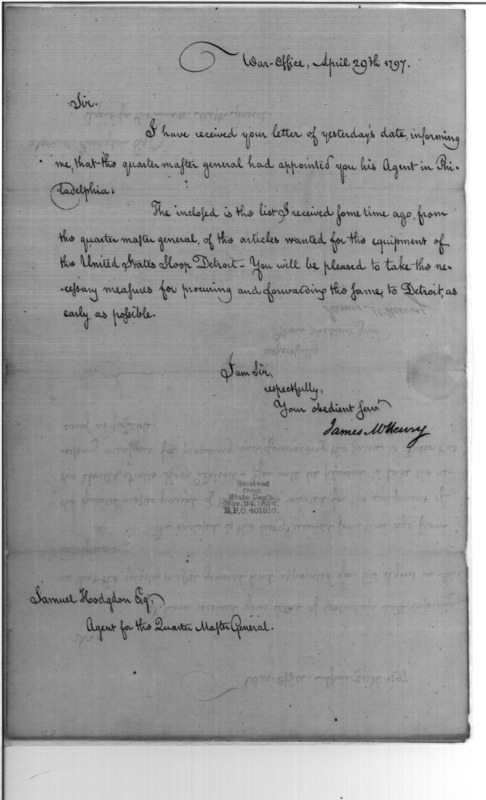 War-Office, April 29th 1797.
Sir.
I have received your letter of yesterday's date, informing
me, that the quarter master general had appointed you his Agent in Phi-
ladelphia.
The inclosed is the list I received some time ago, from
the quarter master general, of the articles wanted for the equipment of
the United States Sloop Detroit - You will be pleased to take the ne-
cessary measures for procuring and forwarding the same, to Detroit, as
early as possible.
I am Sir,
respectfully,
Your obedient Servt
James McHenry
Received
from
State Dept.
R.P.O. 401810.
Samuel Hodgdon Esq.
Agent for the Quarter Master General.